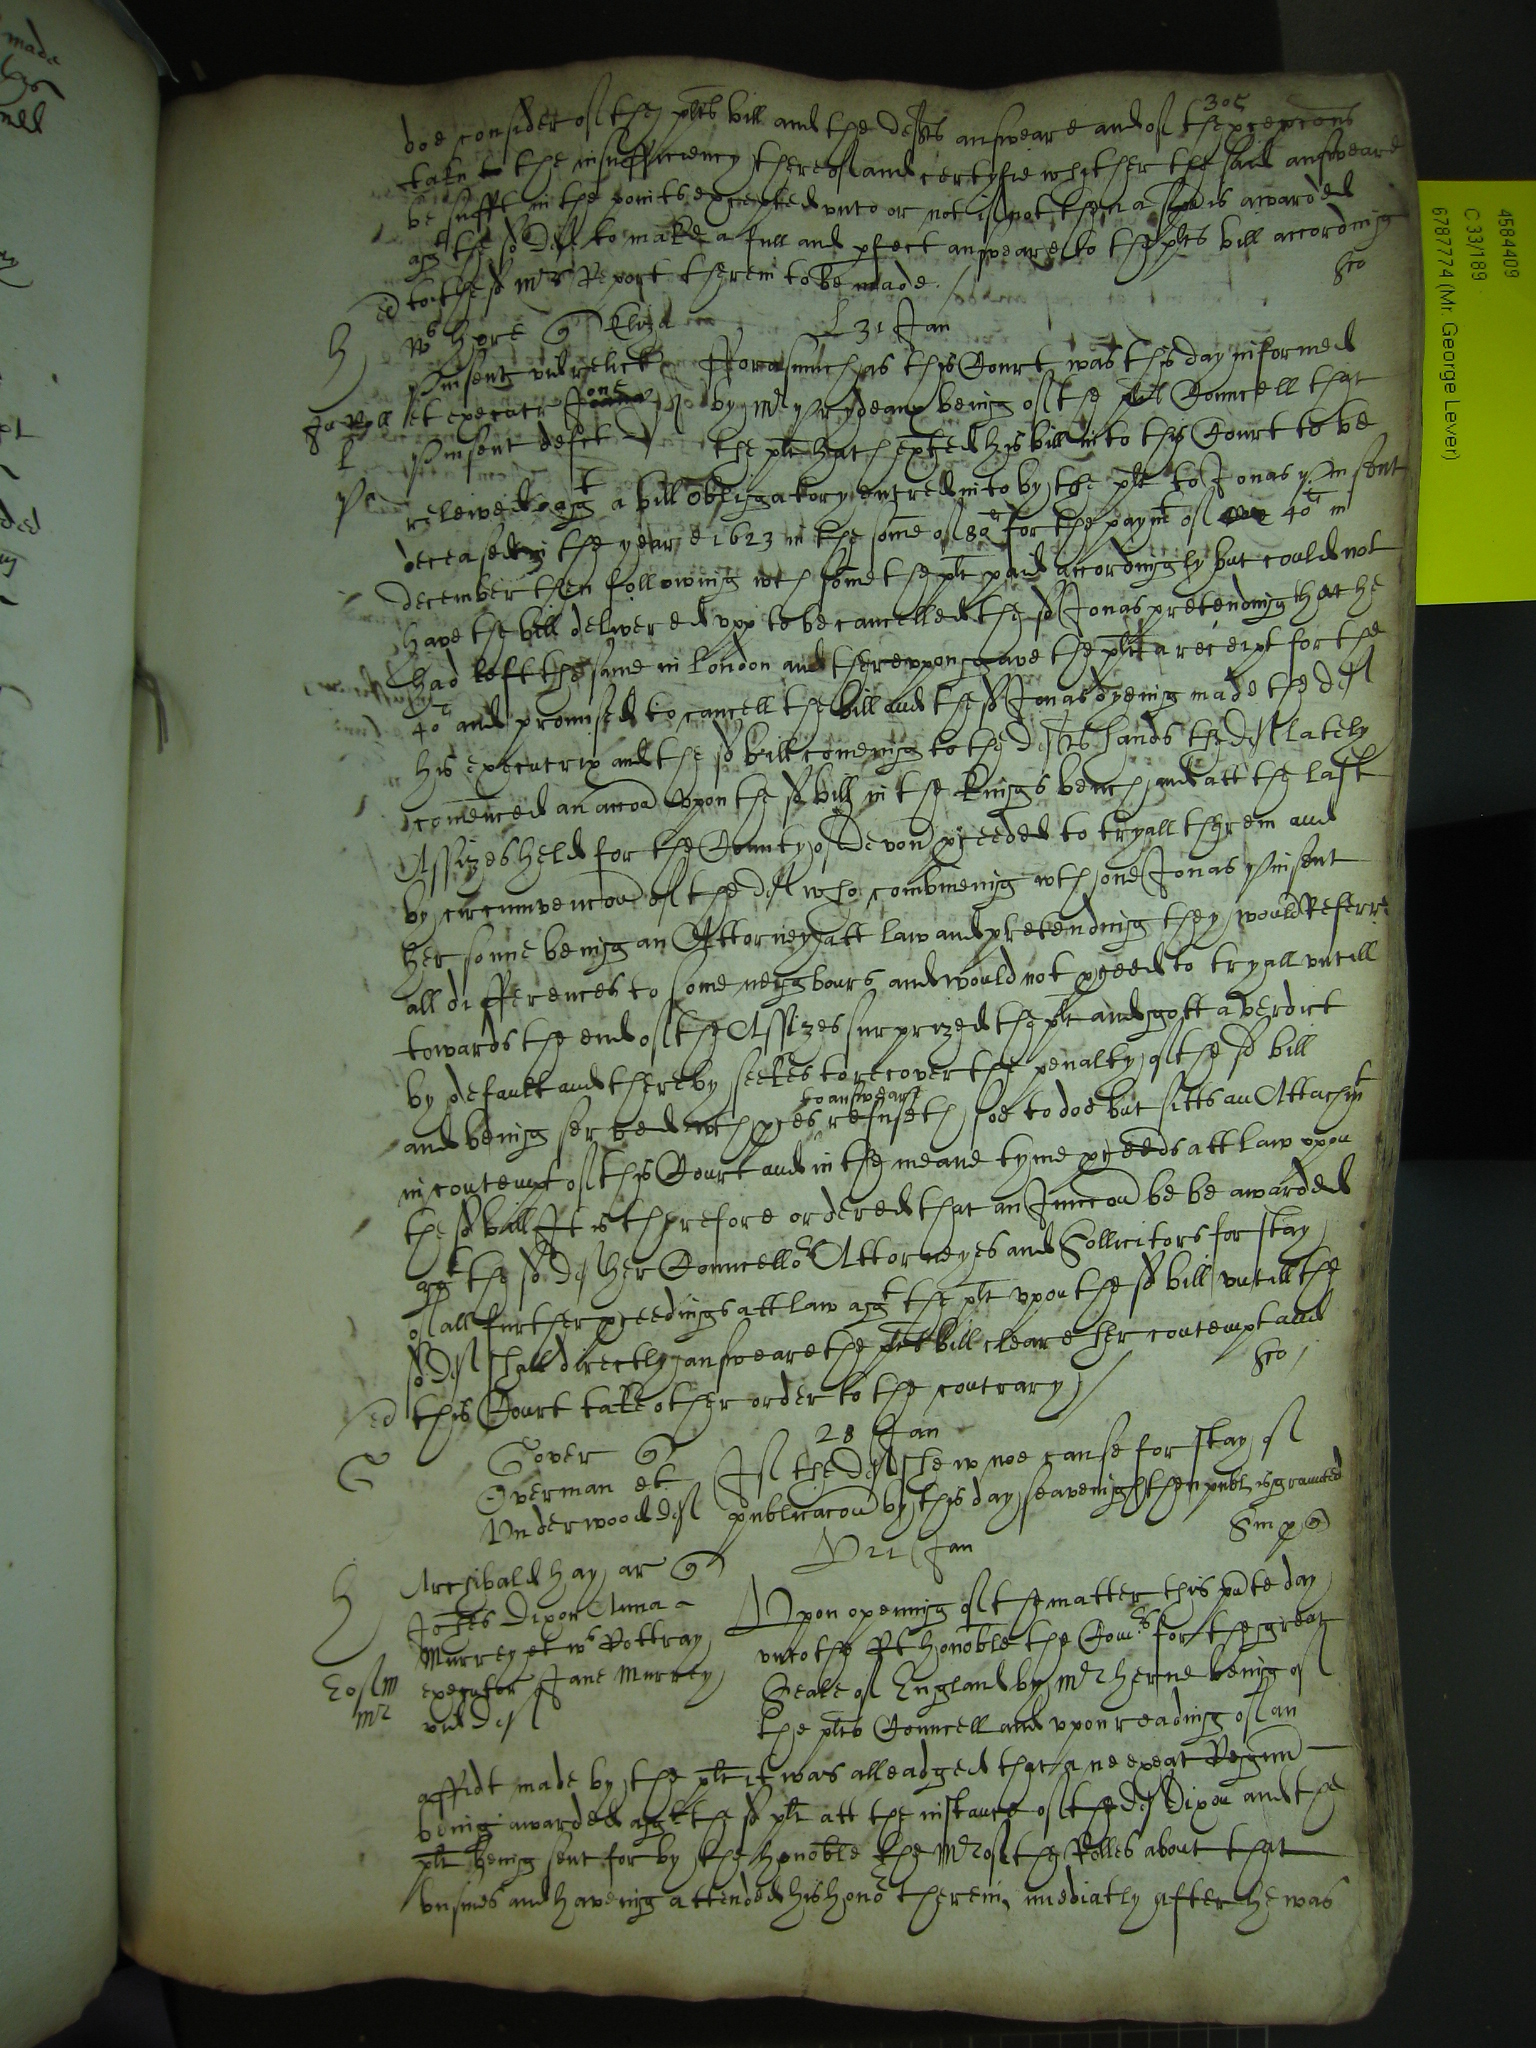 305
doe consider of the plts bill and the defts answeare and of the excepcons
taken to the insufficiency thereof and certyfie whether the said answeare
be sufft in the points excepted unto or not if not then a is awarded
agt the sd Deft to make a full and pfect answeare to the plts bill according
to the sd Mrs Report therein to be made.
31 Jan
Pinsent vid relict
et executr Jone
Pinsent deft
Forasmuch as this Court was this day informed
by Mr Prydeaux being of the plts Councell that
the plt hath exhited his bill into this Court to be
releived agt a bill obligatory entred into by the plt to Jonas Pinsent
deceased in the yeare 1623 in the some of 80 for the paymt of 40 in
december then following wch some the plt paid accordingly but could not
have the bill delivered upp to be cancelled the sd Jonas pretending that he
had left the same in London and thereuppon gave the plt a receipt for the
40 and promised to cancell the bill and the sd Jonas dyeing made the def
his executrix and the sd bill comeing to the defts hands the def lately
comenced an accon upon the sd bill in the Kings bench and att the last
Assizes held for the County of Devon pceeded to tryall therein and
by circumvencon of the def who combineing wth one Jonas Pinsent
her sonne being an Attorney att law and pretending they would Referre
all differences to some neighbours and would not pceed to tryall untill
towards the end of the Assizes surprized the plt and gott a verdict
by default and thereby seekes to recover the penalty of the sd bill
and being served wth pces to answeare refuseth soe to doe but sitts an Attachmt
in contempt of this Court and in the meane tyme pceeds att law upon
the sd bill It is therefore ordered that an Iniuncon be be awarded
agt the sd def her Councellors Attorneyes and Sollicitors for stay
of all further pceedings att law agt the plt upon the sd bill untill the
sd def shall directly answeare the plts bill cleare her contempt and
this Court take other order to the contrary
28 Jan
Gover
Overman et
Underwood def
If the def shew noe cause for stay of
publicacon by this day seavenight then publ is graunted
22 Jan
Archibald hay ar
Johes Dixon Anna
Murrey et Wm Pottray
executor Jane Murrey
vid def
Upon opening of the matter this pnte day
unto the Rt honoble the Comrs for the great
Seale of England by Mr herne being of
the plts Councell and upon reading of an
affidt made by the plt it was alleadged that a ne exeat Regnum
being awarded agt the sd plt att the instance of the def Dixon and the
plt being sent for by the honoble the Mr of the Rolles about that
busines and haveing attended his honor therein imediatly after he was
4584409
C 33/189
6787774 (Mr. George Lever)